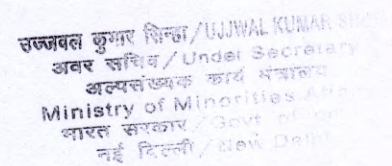 उज्जवल कुमार सिन्हा/UJJWAL KUMAR
अवर सचिव/Under Secretary
अल्पसंख्यक कार्य मंत्रालय
Ministry of Minorities
भारत सरकार/Govt of
नई दिल्ली/New Delhi